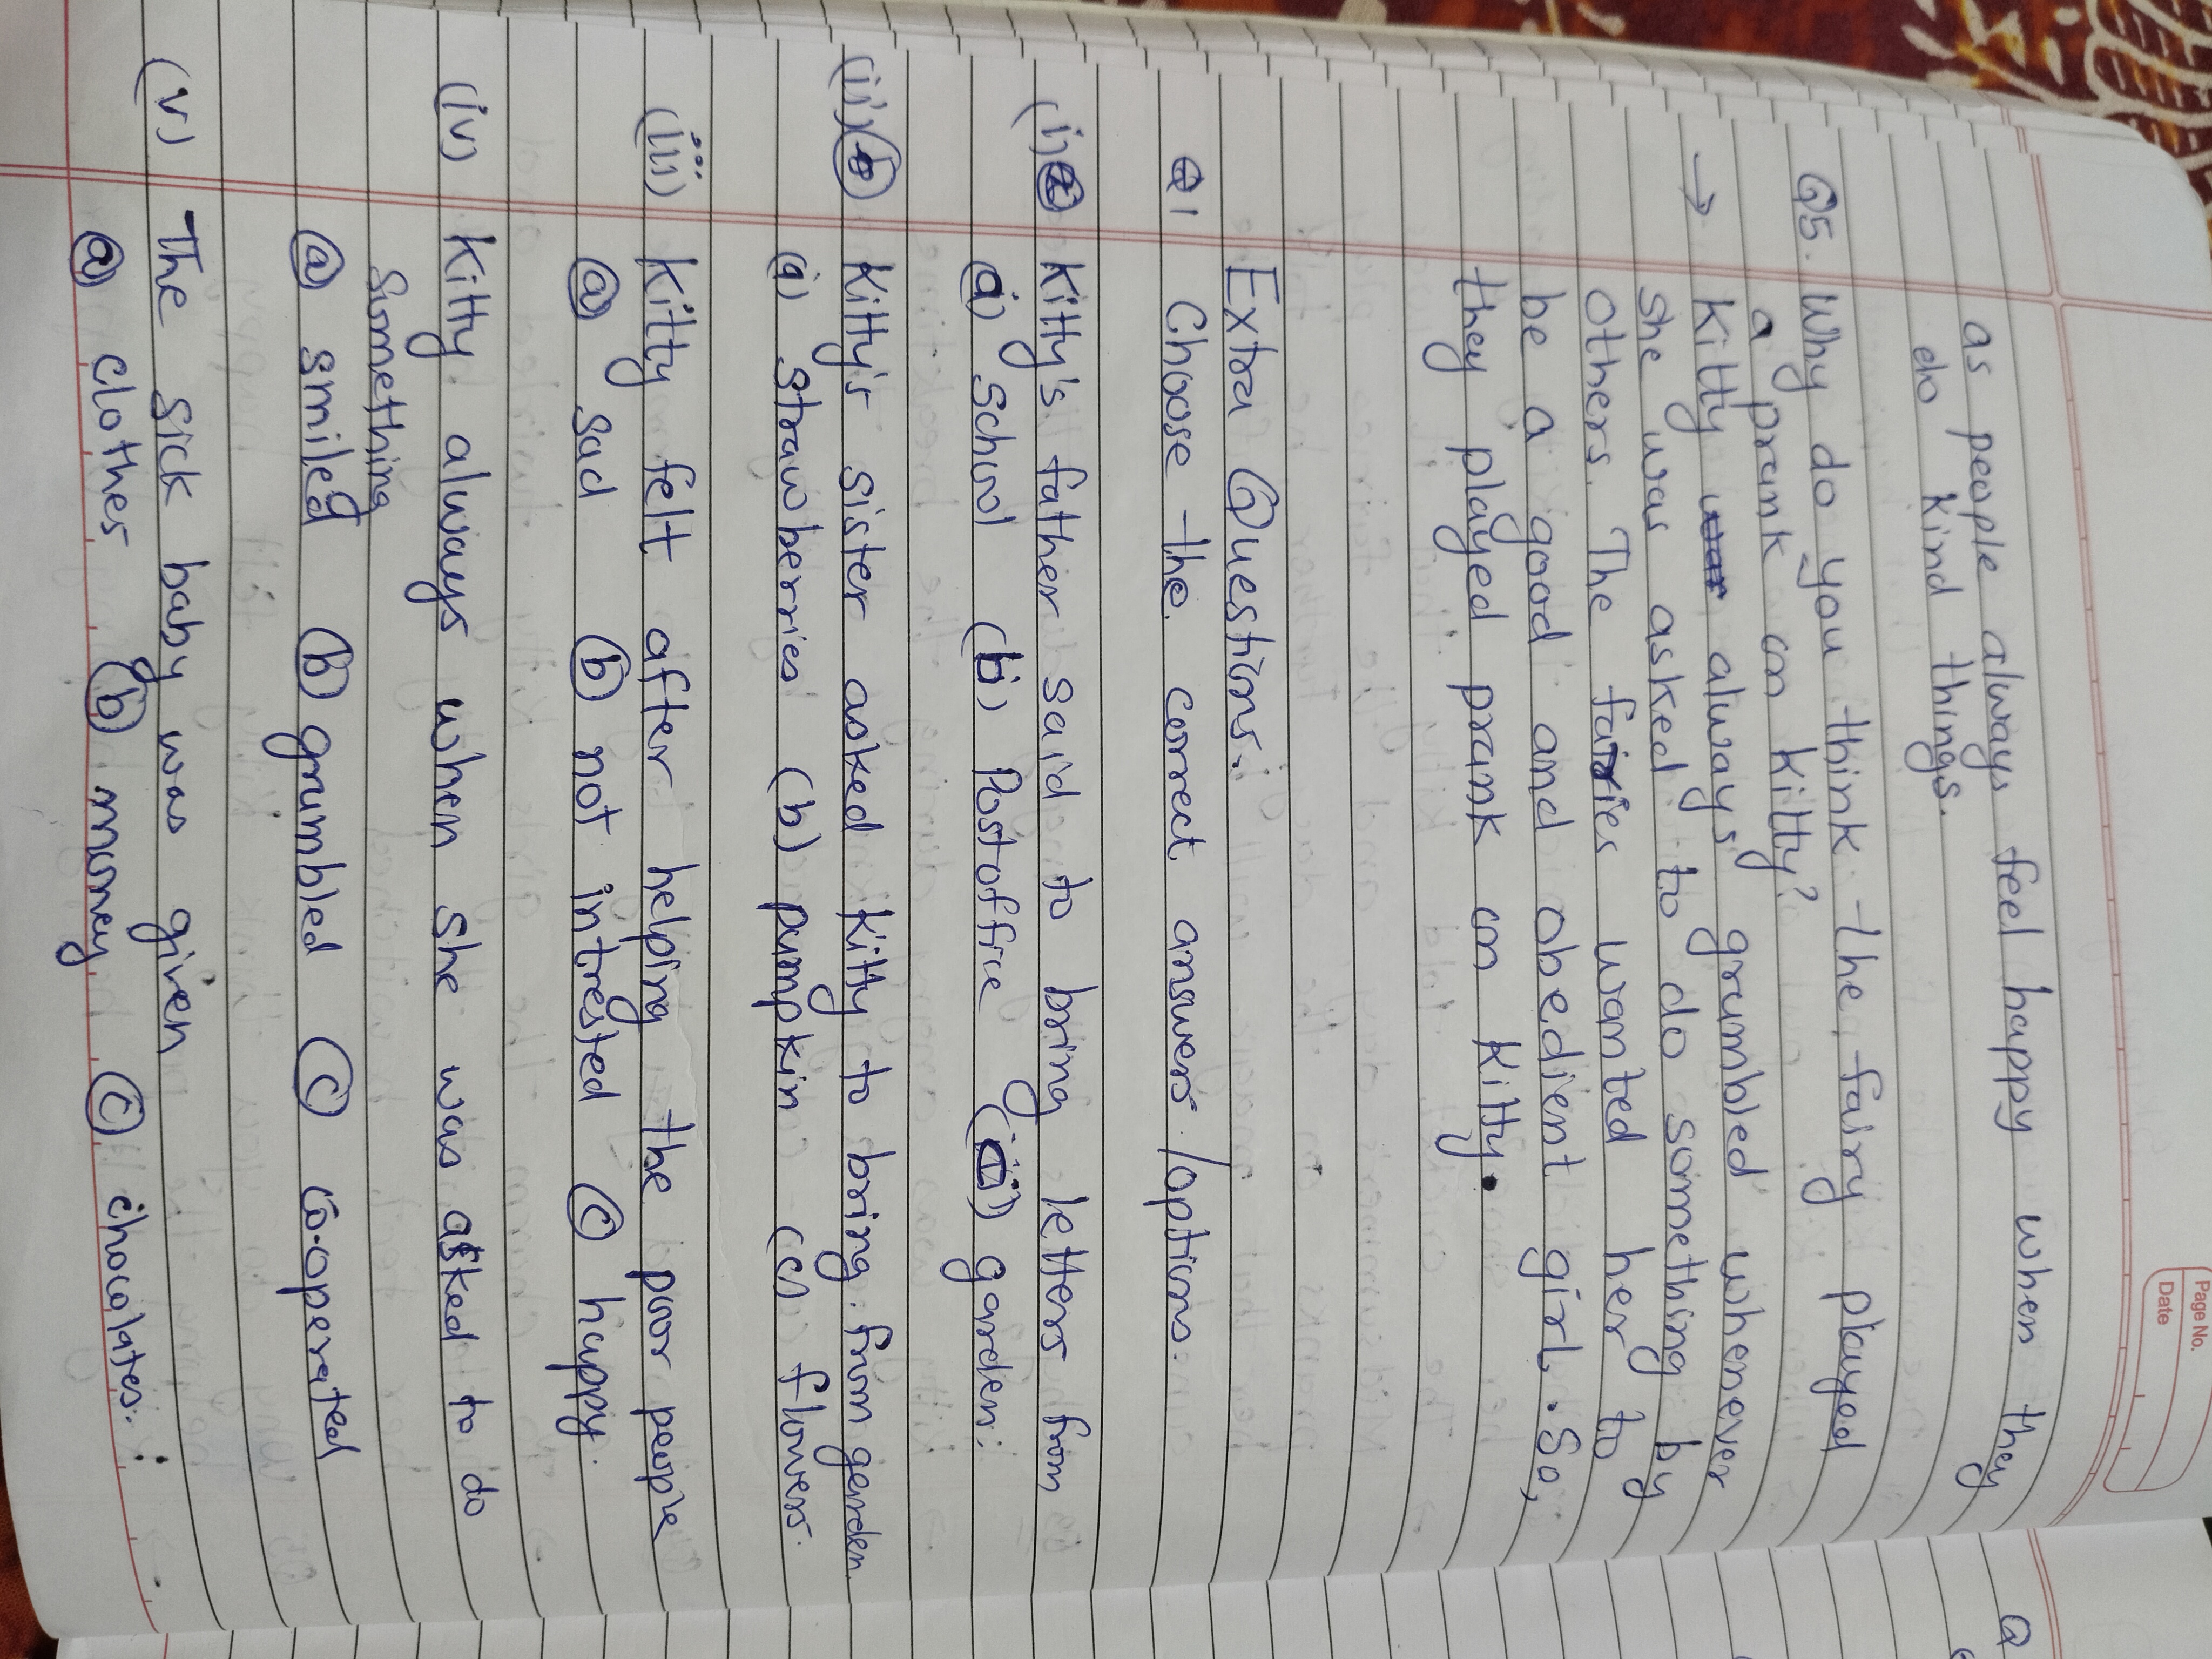 Page No.
Date
as people always feel happy when they
do kind things.
Q5. Why do you think the fairy played
a prank on Kitty?
→ Kitty always grumbled whenever
she was asked to do something by
others. The fairies wanted her to
be a good and obedient girl. So,
they played prank on Kitty.
Extra Questions.
Q1 Choose the correct answers /options.
(i) Kitty's father said to bring letters from
a) School (b) Postoffice garden.
(ii) Kitty's sister asked Kitty to bring from garden
(a) Strawberries (b) pumpkin (c) flowers.
(iii) Kitty felt after helping the poor people
(a) sad (b) not intrested (c) happy.
(iv) Kitty always when she was asked to do
Something
(a) smiled (b) grumbled (c) co-operated
(v) The sick baby was given
(a) clothes (b) money (c) chocolates.
Q